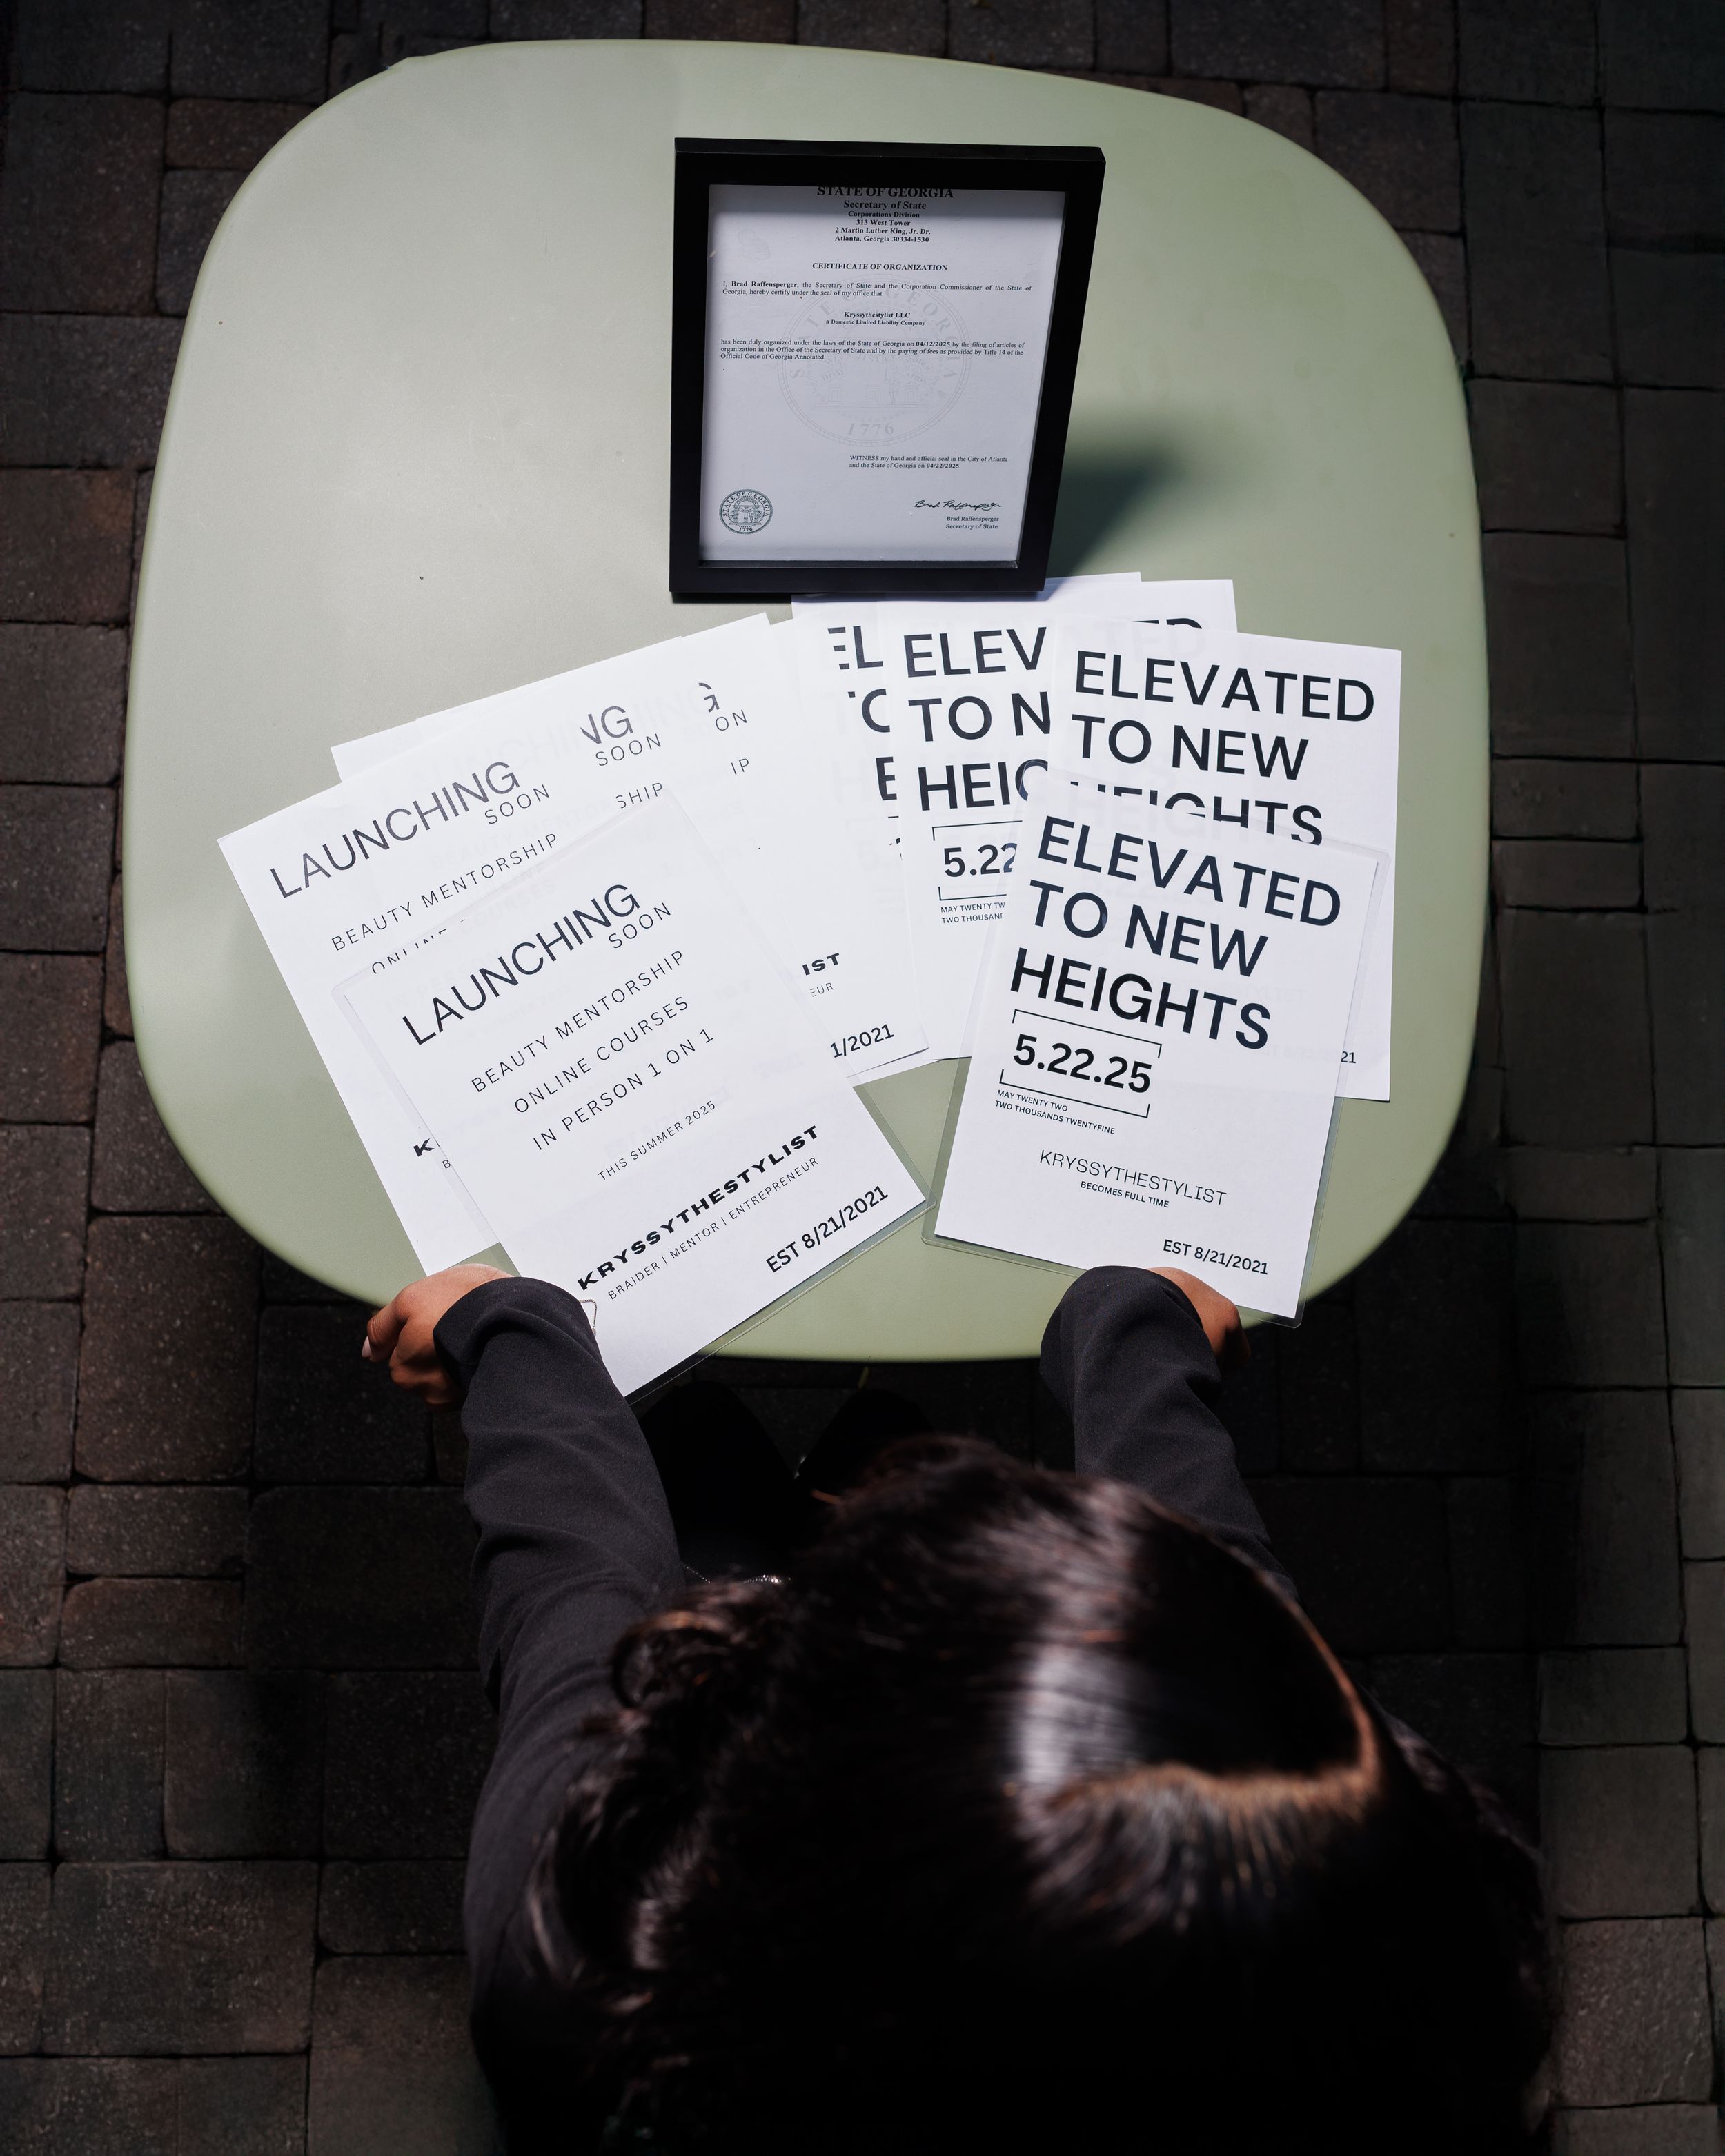 STATE OF GEORGIA
Secretary of State
Corporations Division
313 West Tower
2 Martin Luther King, Jr. Dr.
Atlanta, Georgia 30334-1530
CERTIFICATE OF ORGANIZATION
I, Brad Raffensperger, the Secretary of State and the Corporation Commissioner of the State of
Georgia, hereby certify under the seal of my office that
Kryssythestylist LLC
a Domestic Limited Liability Company
has been duly organized under the laws of the State of Georgia on 04/12/2025 by the filing of articles of
organization in the Office of the Secretary of State and by the paying of fees as provided by Title 14 of the
Official Code of Georgia Annotated.
1776
WITNESS my hand and official seal in the City of Atlanta
and the State of Georgia on 04/22/2025.
STATE OF GEORGIA
1776
Brad Raffensperger
Brad Raffensperger
Secretary of State
LAUNCHING
SOON
BEAUTY MENTORSHIP
ONLINE
K
B
NG
SOON
SHIP
G
ON
IP
IST
EUR
1/2021
LAUNCHING
SOON
BEAUTY MENTORSHIP
ONLINE COURSES
IN PERSON 1 ON 1
THIS SUMMER 2025
KRYSSYTHESTYLIST
BRAIDER | MENTOR | ENTREPRENEUR
EST 8/21/2021
EL
TO
HE
5.
ELEV
TO N
HEIG
5.22
MAY TWENTY TW
TWO THOUSAN
TED
ELEVATED
TO NEW
HEIGHTS
21
ELEVATED
TO NEW
HEIGHTS
5.22.25
MAY TWENTY TWO
TWO THOUSANDS TWENTYFINE
KRYSSYTHESTYLIST
BECOMES FULL TIME
EST 8/21/2021